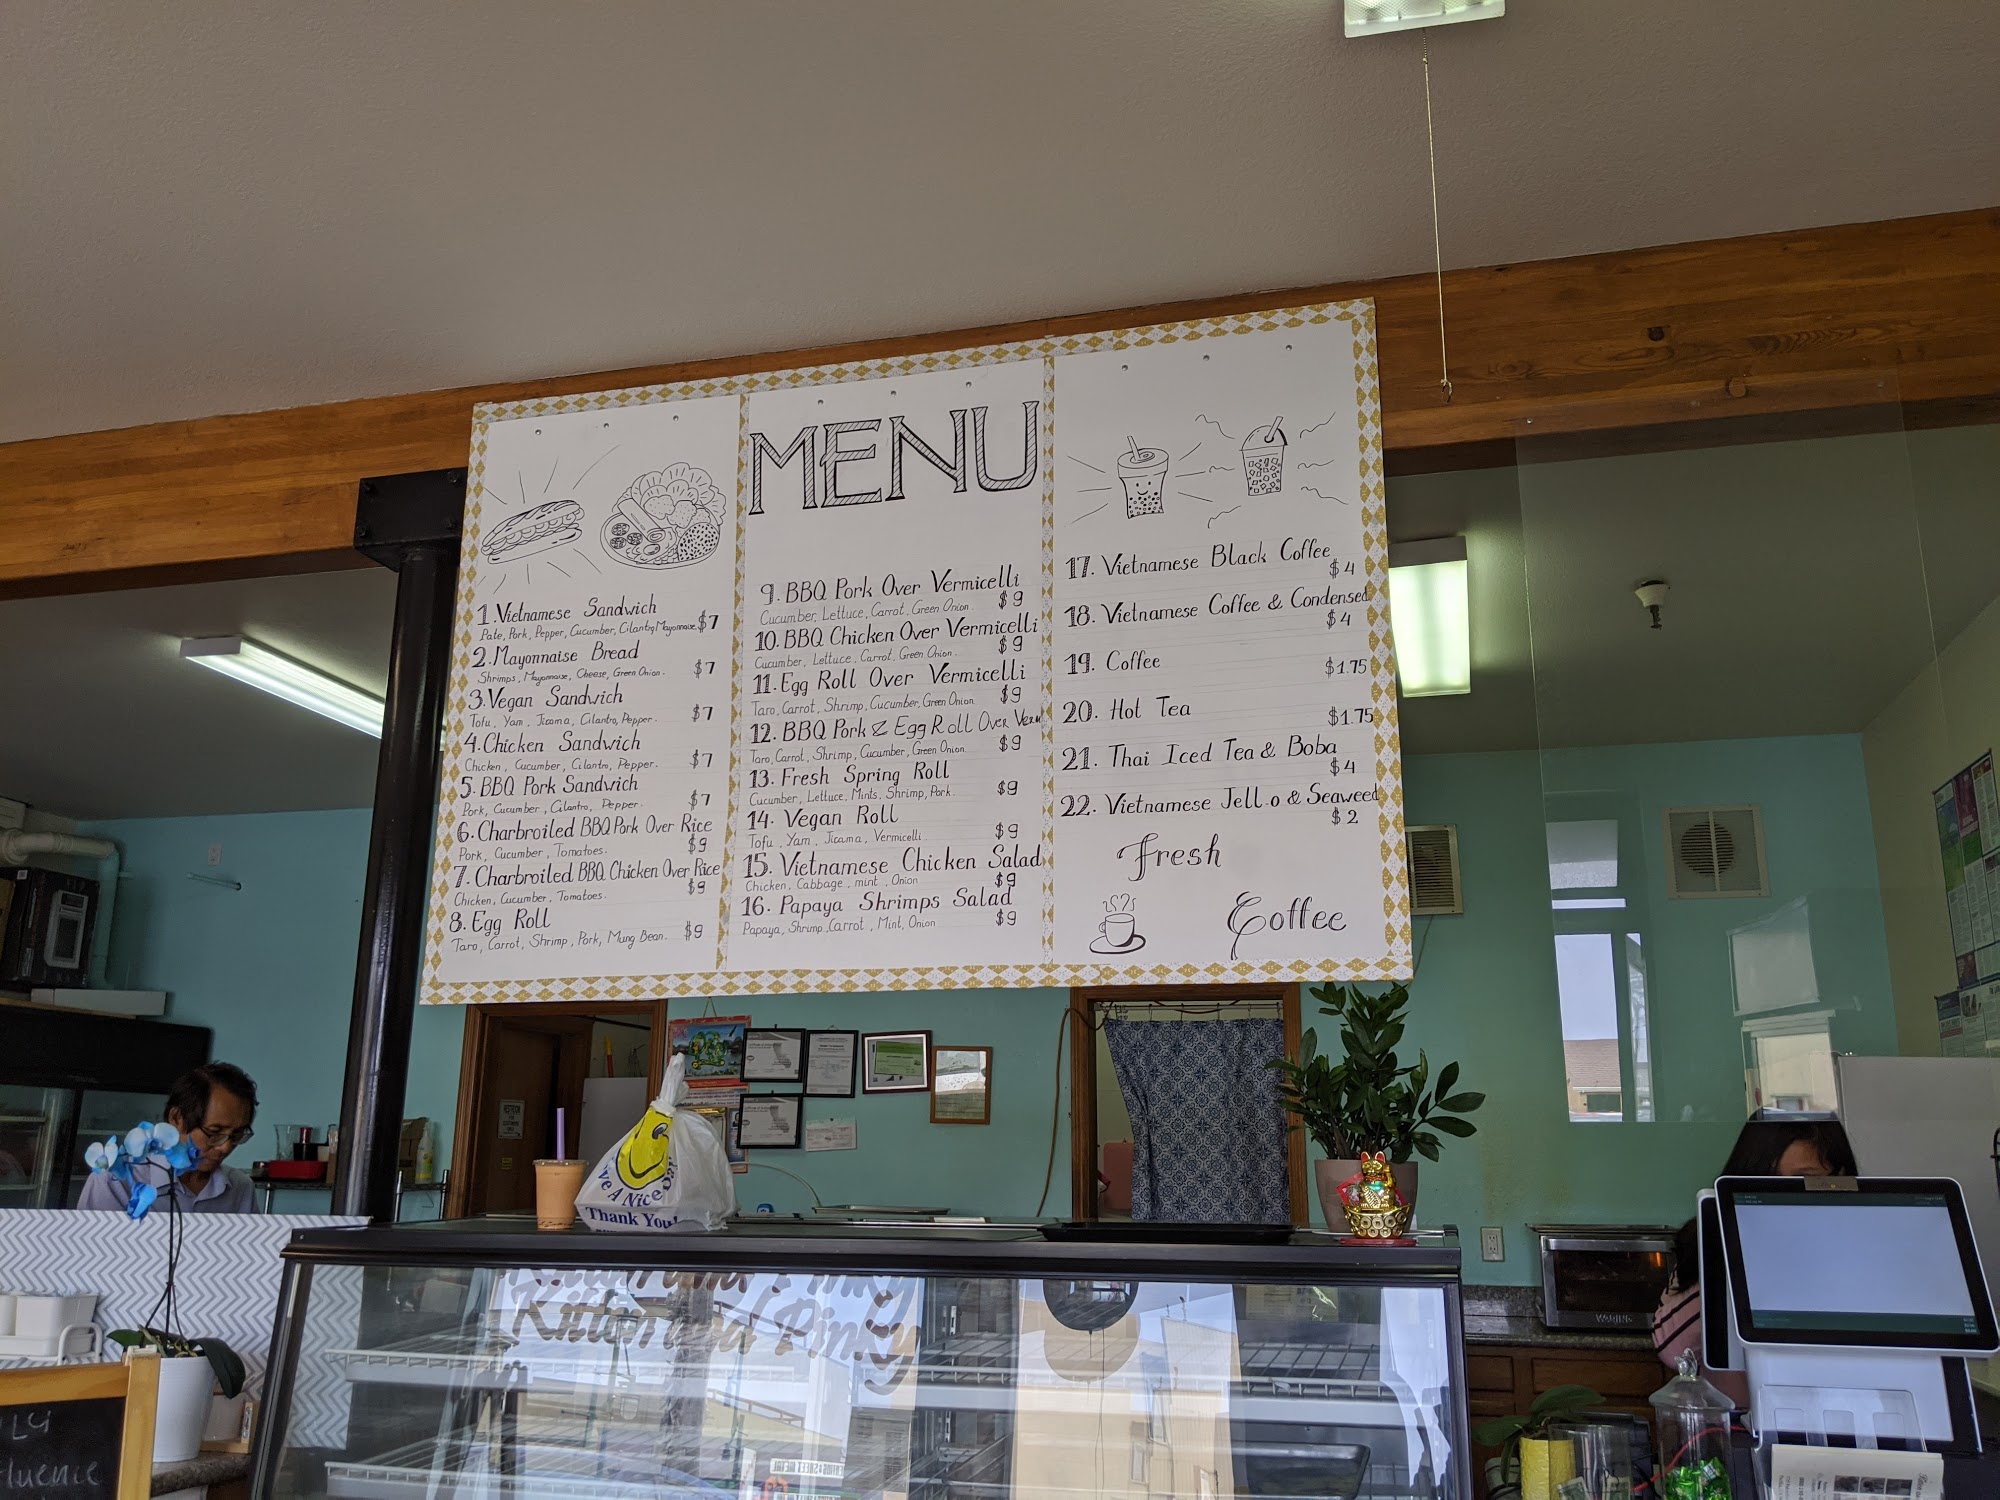 MENU
1. Vietnamese Sandwich
Pate, Pork, Pepper, Cucumber, Cilantro, Mayonnaise. $7
2. Mayonnaise Bread
Shrimps, Mayonnaise, Cheese, Green Onion. $7
3. Vegan Sandwich
Tofu, Yam, Jicama, Cilantro, Pepper. $7
4. Chicken Sandwich
Chicken, Cucumber, Cilantro, Pepper. $7
5. BBQ Pork Sandwich
Pork, Cucumber, Cilantro, Pepper. $7
6. Charbroiled BBQ Pork Over Rice
Pork, Cucumber, Tomatoes. $9
7. Charbroiled BBQ Chicken Over Rice
Chicken, Cucumber, Tomatoes. $9
8. Egg Roll
Taro, Carrot, Shrimp, Pork, Mung Bean. $9
9. BBQ Pork Over Vermicelli
Cucumber, Lettuce, Carrot, Green Onion. $9
10. BBQ Chicken Over Vermicelli
Cucumber, Lettuce, Carrot, Green Onion. $9
11. Egg Roll Over Vermicelli
Taro, Carrot, Shrimp, Cucumber, Green Onion $9
12. BBQ Pork & Egg Roll Over Verm
Taro, Carrot, Shrimp, Cucumber, Green Onion. $9
13. Fresh Spring Roll
Cucumber, Lettuce, Mints, Shrimp, Pork. $9
14. Vegan Roll
Tofu, Yam, Jicama, Vermicelli. $9
15. Vietnamese Chicken Salad
Chicken, Cabbage, mint, Onion $9
16. Papaya Shrimps Salad
Papaya, Shrimp, Carrot, Mint, Onion $9
17. Vietnamese Black Coffee
$4
18. Vietnamese Coffee & Condensed
$4
19. Coffee $1.75
20. Hot Tea $1.75
21. Thai Iced Tea & Boba
$4
22. Vietnamese Jell-o & Seaweed
$2
Fresh
Coffee
've A Nice Day!
Thank You!
Kitten and Pinky
WARING
LY
fluence